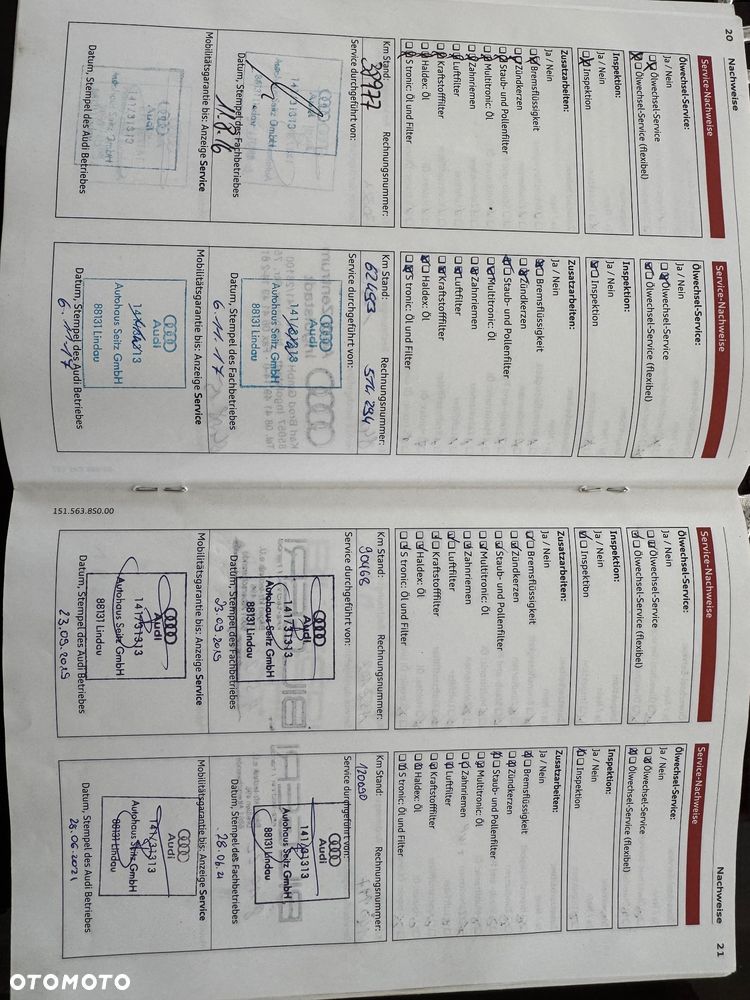 20
Nachweise
Service-Nachweise
Ölwechsel-Service:
Ja / Nein
Ölwechsel-Service
Ölwechsel-Service (flexibel)
Inspektion:
Ja / Nein
Inspektion
Zusatzarbeiten:
Ja / Nein
Bremsflüssigkeit
Zündkerzen
Staub- und Pollenfilter
Multitronic: Öl
Zahnriemen
Luftfilter
Kraftstofffilter
Haldex: Öl
S tronic: Öl und Filter
Km Stand:
Rechnungsnummer:
38977
Service durchgeführt von:
Audi
141/31313
88131 Lindau
11.8.16
Datum, Stempel des Fachbetriebes
Mobilitätsgarantie bis: Anzeige Service
Audi
141/31313
Datum, Stempel des Audi Betriebes
Service-Nachweise
Ölwechsel-Service:
Ja / Nein
Ölwechsel-Service
Ölwechsel-Service (flexibel)
Inspektion:
Ja / Nein
Inspektion
Zusatzarbeiten:
Ja / Nein
Bremsflüssigkeit
Zündkerzen
Staub- und Pollenfilter
Multitronic: Öl
Zahnriemen
Luftfilter
Kraftstofffilter
Haldex: Öl
S tronic: Öl und Filter
Km Stand:
Rechnungsnummer:
62493
514 294
Service durchgeführt von:
Audi
141/31313
Autohaus Seitz GmbH
88131 Lindau
6.11.17
Datum, Stempel des Fachbetriebes
Mobilitätsgarantie bis: Anzeige Service
Audi
141/31313
Autohaus Seitz GmbH
88131 Lindau
6.11.17
Datum, Stempel des Audi Betriebes
151.563.8S0.00
Service-Nachweise
Ölwechsel-Service:
Ja / Nein
Ölwechsel-Service
Ölwechsel-Service (flexibel)
Inspektion:
Ja / Nein
Inspektion
Zusatzarbeiten:
Ja / Nein
Bremsflüssigkeit
Zündkerzen
Staub- und Pollenfilter
Multitronic: Öl
Zahnriemen
Luftfilter
Kraftstofffilter
Haldex: Öl
S tronic: Öl und Filter
Km Stand:
Rechnungsnummer:
90468
Service durchgeführt von:
Audi
141/31313
Autohaus Seitz GmbH
88131 Lindau
23.09.2019
Datum, Stempel des Fachbetriebes
Mobilitätsgarantie bis: Anzeige Service
Audi
141/31313
Autohaus Seitz GmbH
88131 Lindau
23.09.2019
Datum, Stempel des Audi Betriebes
Nachweise
21
Service-Nachweise
Ölwechsel-Service:
Ja / Nein
Ölwechsel-Service
Ölwechsel-Service (flexibel)
Inspektion:
Ja / Nein
Inspektion
Zusatzarbeiten:
Ja / Nein
Bremsflüssigkeit
Zündkerzen
Staub- und Pollenfilter
Multitronic: Öl
Zahnriemen
Luftfilter
Kraftstofffilter
Haldex: Öl
S tronic: Öl und Filter
Km Stand:
Rechnungsnummer:
Service durchgeführt von:
Audi
141/31313
Autohaus Seitz GmbH
88131 Lindau
28.06.21
Datum, Stempel des Fachbetriebes
Mobilitätsgarantie bis: Anzeige Service
Audi
141/31313
Autohaus Seitz GmbH
88131 Lindau
28.06.2021
Datum, Stempel des Audi Betriebes
OTOMOTO